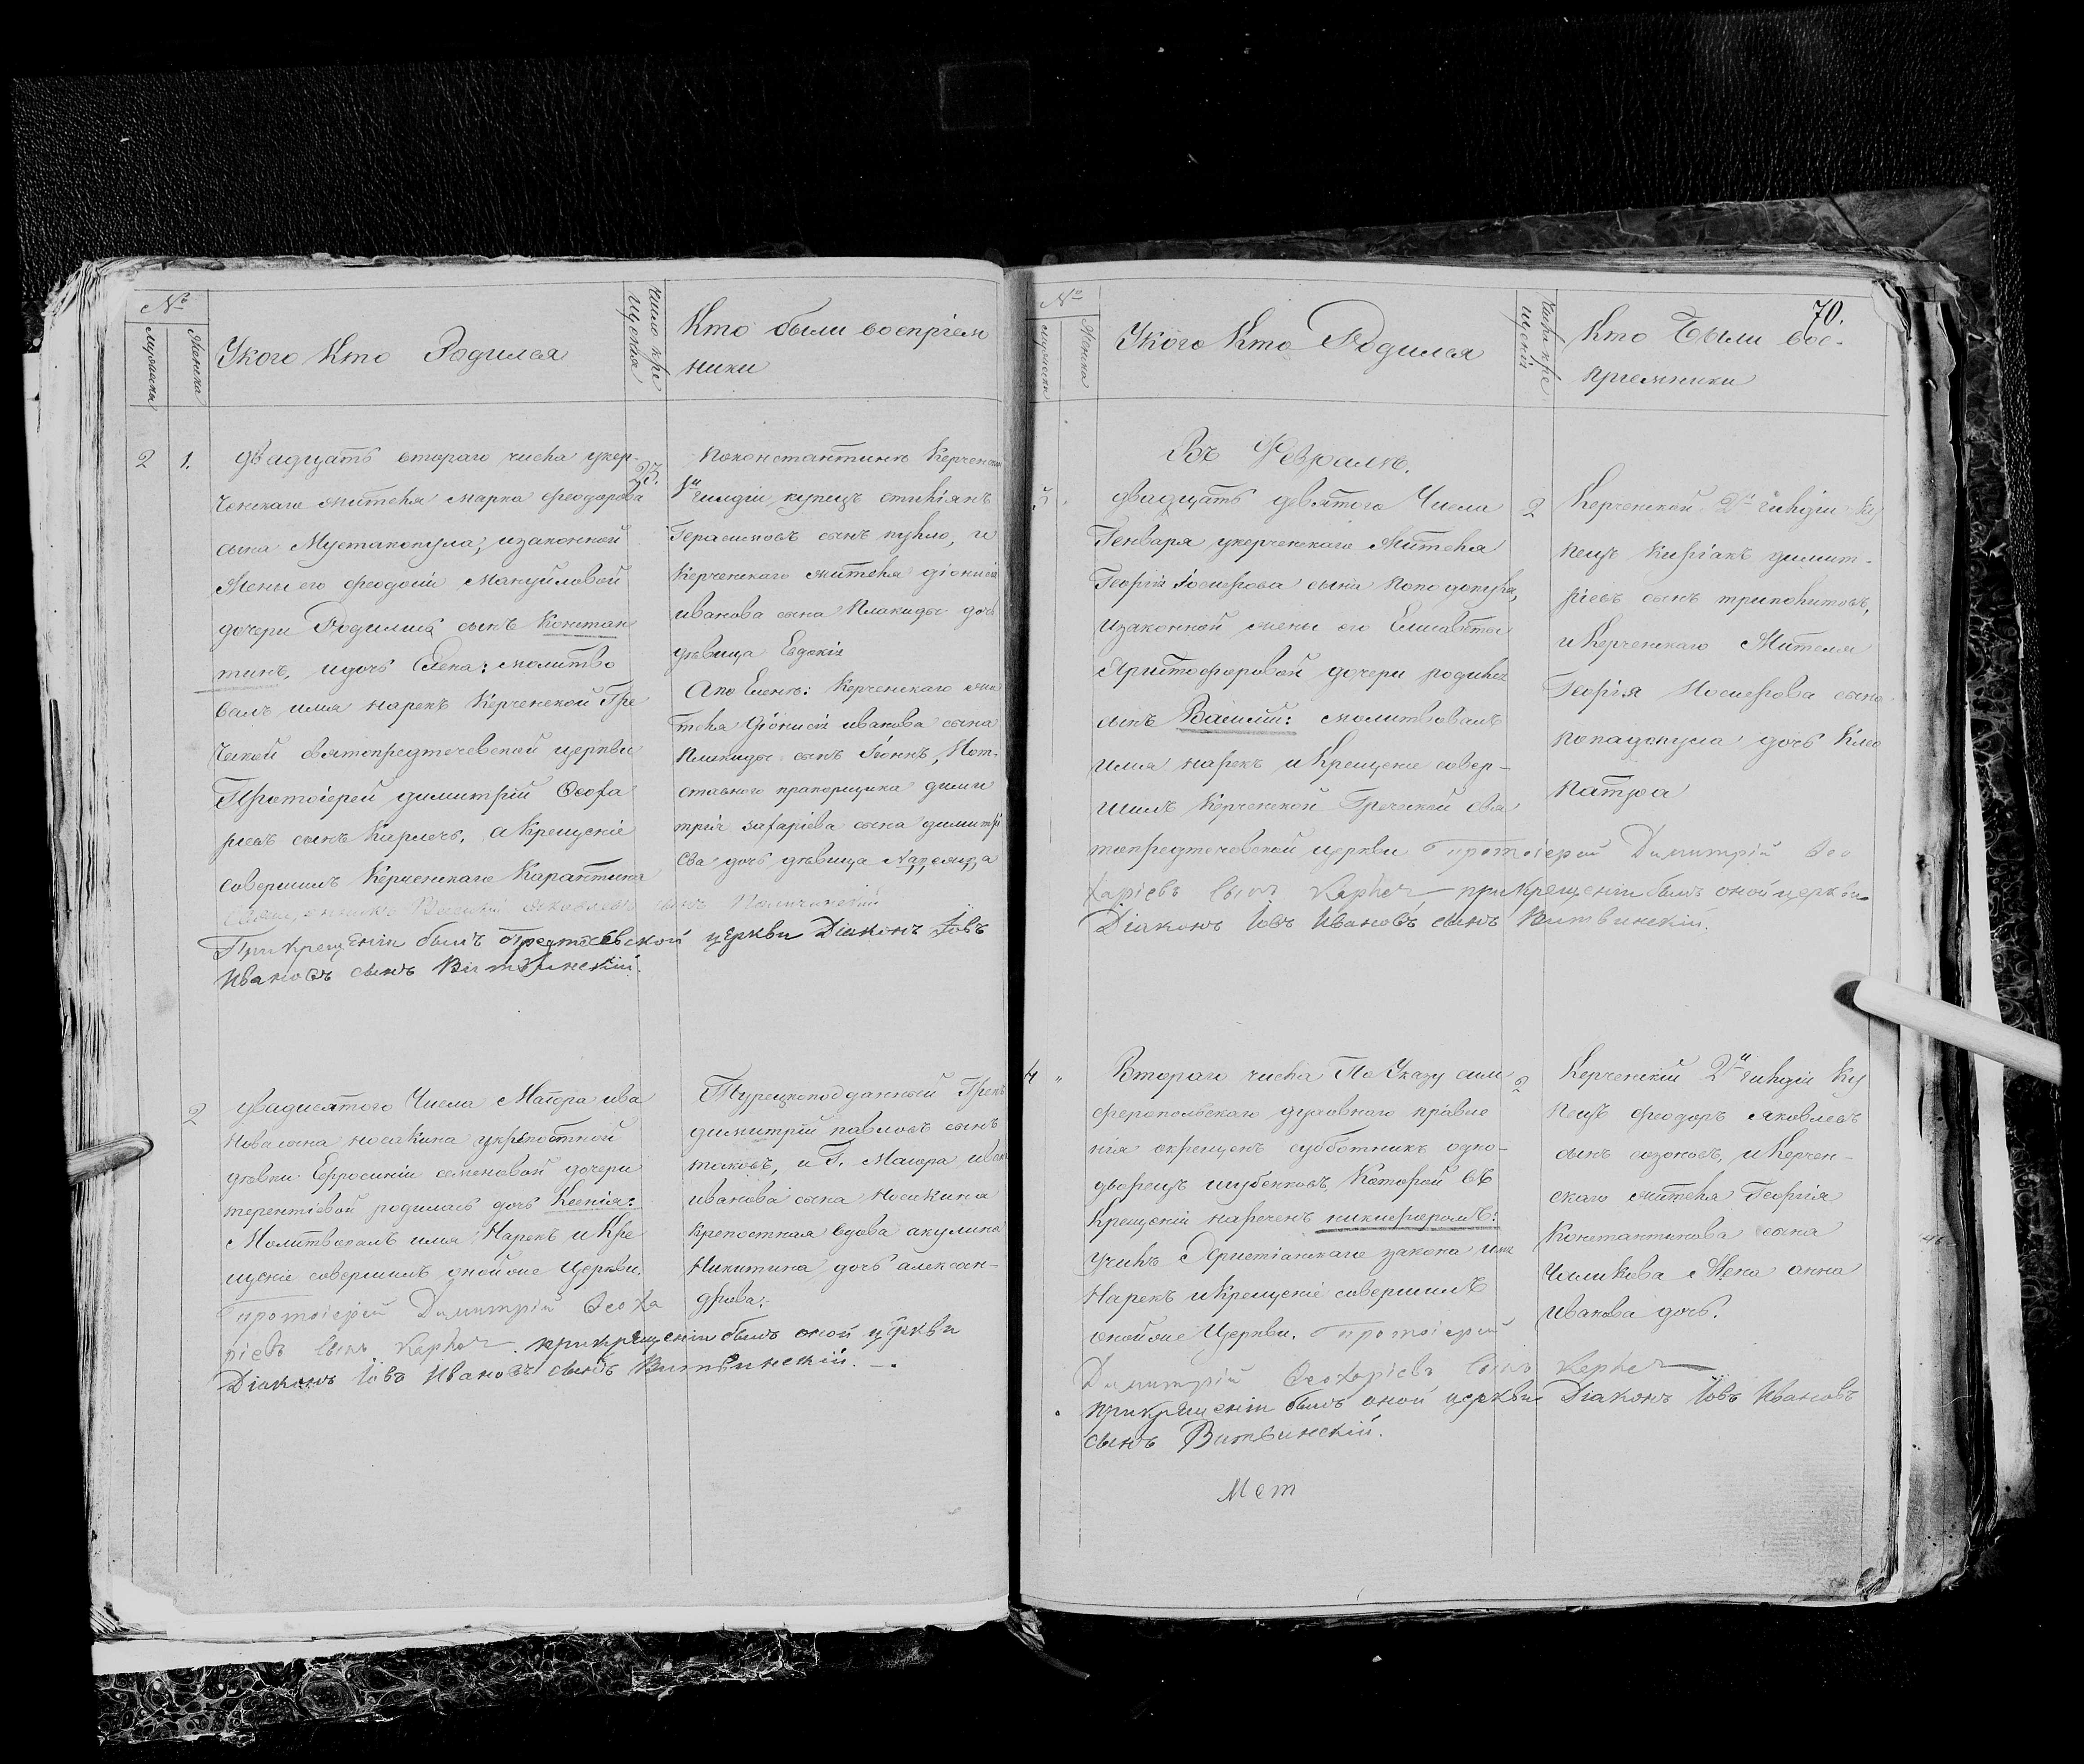 №
Мужеска
Женска
Укого Кто Родился
число кре
щения
Кто были воспрiем
ники
2 1.
двадцать втораго числа укер-
ченскаго жителя марка феодорова
сына Мустакопула, изаконной
Жены его феодосiи Мануйловой
дочери Родились сынъ Констан
тинъ, идочь Елена: молитво
валъ имя нарекъ Керченской Гре
ческой святопредтечевской церкви
Протоiерей димитрiй Ѳеоха
рiевъ сынъ Карлечь, а Крещенiе
совершилъ Керченскаго Карантина
При Крещенiи былъ предтечевской церкви Дiаконъ Iовъ
Ивановъ сынъ Витвинскiй.
23.
Поконстантинѣ Керченской
1й гилдiи купецъ стилiянъ
Герасимовъ сынъ пулло, и
Керченскаго жителя дiонисiя
иванова сына Плакиды дочь
дѣвица Евдокiя
Апо Еленѣ: Керченскаго жи
теля дiонисiя иванова сына
Плакиды сынъ Iоннъ, Иот-
ставного прапорщика дими
трiя захарiева сына димитрi
ева дочь дѣвица Надежда
2
двадцятого Числа Маiора ива
нова сына носакина укрѣпостной
дѣвки Ефросинiи семеновой дочери
терентiевой родилась дочь Ксенiя:
Молитвовалъ имя Нарекъ и Кре
щенiе совершилъ онойже Церкви.
Протоiерей Димитрiй Ѳеоха
рiевъ сынъ Карлеч. прикрещенiи былъ оной церкви
Дiаконъ Iовъ Ивановъ сынъ Витвинскiй.
Турецкоподданный Грекъ
димитрiй павловъ сынъ
и Г. Маiора иван
иванова сына Носакина
Крепостная вдова акулина
Никитина дочь алексан-
дрова:
70.
№
Мужеска
Женска
Укого Кто Родился
Числа кре
щенiй
Кто Были вос-
прiемники
Въ Февралѣ.
3
двадцать девятого Числа
Генваря укерченскаго Жителя
Георгiя Iосифова сына попо допула,
изаконной жены его Елисаветы
Христофоровой дочери родился
сынъ Василiй: молитвовалъ
имя нарекъ и Крещенiе совер-
шилъ Керченской Греческой свя
топредтечевской церкви Протоiерей Димитрiй Ѳео
харiевъ сынъ Карлеч приКрещенiи былъ оной церкви
Дiаконъ Iовъ Ивановъ сынъ Витвинскiй.
2
Керченской 2й гилдiи Ку
пецъ Кирiакъ димит-
рiевъ сынъ триполитовъ,
и Керченскаго Жителя
Георгiя Иосифова сына
попадопула дочь Клео
патра
4 "
Втораго числа По Указу сим
феропольскаго духовнаго правле
нiя окрещенъ субботникъ одно-
дворецъ шубенковъ Которой въ
Крещенiи нареченъ никифоромъ:
училъ Христiанскаго закона имя
Нарекъ и Крещенiе совершилъ
онойже Церкви. Протоiерей
Димитрiй Ѳеохарiевъ сынъ Карлеч
прикрещенiи былъ оной церкви Дiаконъ Iовъ Ивановъ
сынъ Витвинскiй.
2
Керченскiй 2й гилдiи Ку
пецъ феодоръ яковлевъ
сынъ созоновъ, и Керчен-
скаго жителя Георгiя
Константинова сына
Чаликова Жена анна
Иванова дочь.
Мет